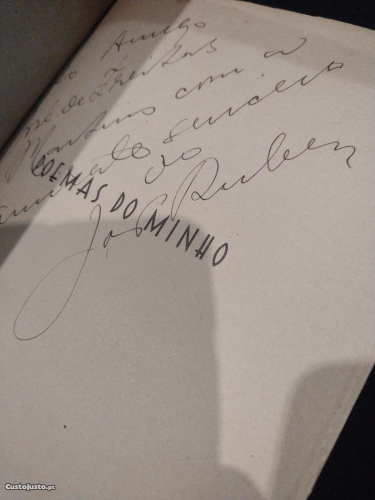 Ao Amigo
José de Freitas
Martins com a
amizade sincera
do
José Ruben
POEMAS DO MINHO
CustoJusto.pt